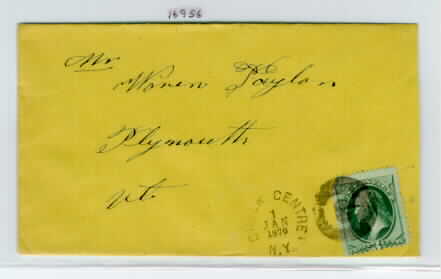 16956
Mr
Warren Taylor
Plymouth
Vt.
CENTRE
1
JAN
1879
N.Y.